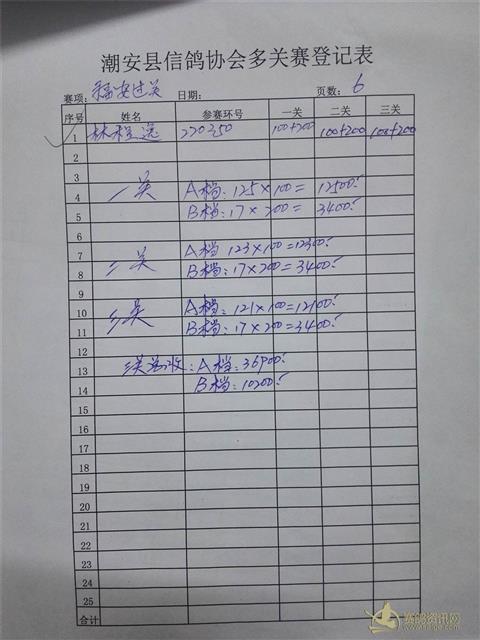 潮安县信鸽协会多关赛登记表
赛项: 福安过关 日期: 页数: 6
序号 姓名 参赛环号 一关 二关 三关
1 林 220350 100+200 100+200 100+200
2
3
4 一关 A档: 125×100= 12500.
5 B档: 17×200= 3400.
6
7 二关 A档 123×100=12300.
8 B档: 17×200=3400.
9
10 三关 A档: 121×100=12100.
11 B档: 17×200=3400.
12
13 三关 收: A档: 36900.
14 B档: 10200.
15
16
17
18
19
20
21
22
23
24
25
合计
赛鸽资讯网